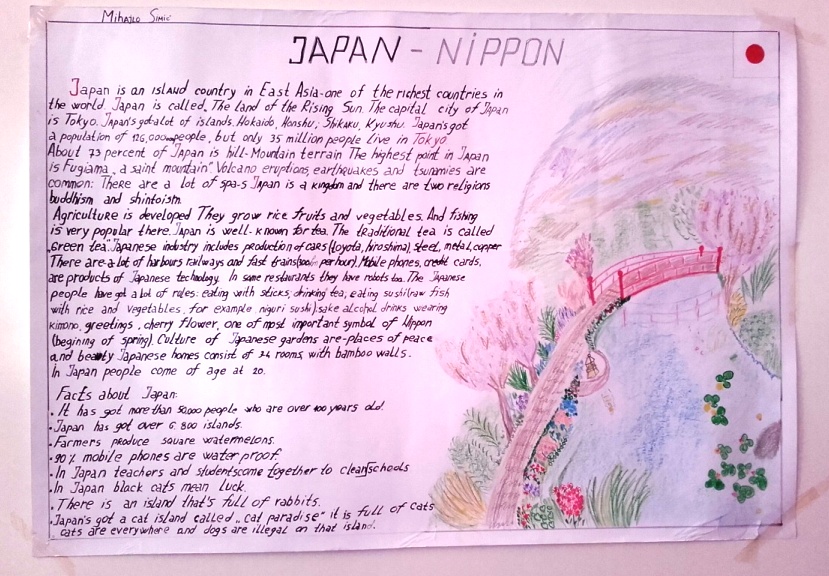 Mihajlo Simić
JAPAN - NIPPON
Japan is an island country in East Asia-one of the richest countries in
the world. Japan is called. The land of the Rising Sun. The capital city of Japan
is Tokyo. Japan's got a lot of islands. Hokaido, Honshu; Shikaku, Kyushu. Japan's got
a population of 126,000 people, but only 35 million people live in Tokyo
About 73 percent of Japan is hill-Mountain terrain The highest point in Japan
is Fugiama „a saint mountain" Volcano eruptions, earthquakes and tsunamies are
common: There are a lot of spa-s Japan is a kingdom and there are two religions
buddhism and shintoism.
Agriculture is developed They grow rice fruits and vegetables. And fishing
is very popular there. Japan is well-known for tea. The traditional tea is called
„Green tea". Japanese industry includes production of cars (toyota, hiroshima), steel, metal, copper
There are a lot of harbours railways and fast trains ( per hour). Mobile phones, credit cards,
are products of Japanese technology. In some restaurants they have robots too. The Japanese
people have got a lot of rules: eating with sticks, drinking tea, eating sushi (raw fish
with rice and vegetables, for example niguri sushi), sake alcohol drinks wearing
kimono, greetings, cherry flower, one of most important symbol of Nippon
(begining of spring). Culture of Japanese gardens are-places of peace
and beauty Japanese homes consist of rooms, with bamboo walls.
In Japan people come of age at 20.
Facts about Japan:
• It has got more than 50,000 people who are over 100 years old.
• Japan has got over 6 800 islands.
• Farmers produce square watermelons.
• 90% mobile phones are water proof.
• In Japan teachers and students come together to clean schools
• In Japan black cats mean luck.
• There is an island that's full of rabbits.
• Japan's got a cat island called „cat paradise" it is full of cats
cats are everywhere and dogs are illegal on that island.